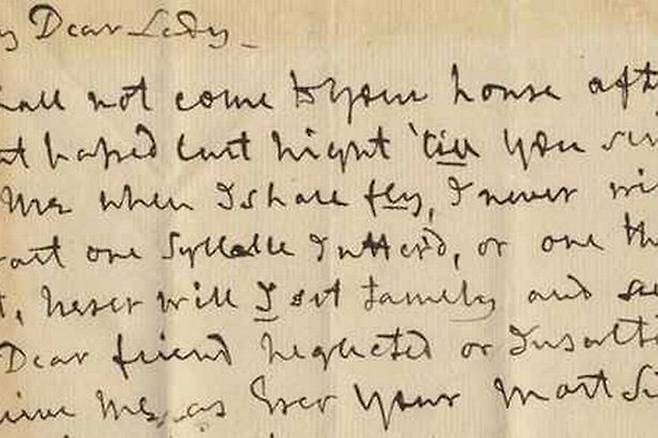 y Dear Lady_
hall not come to your house aft
at hapned last night 'till you
Me when I shall fly, I never wi
ract one Syllable I utter'd, or one th
t, never will I sit tamely and se
Dear friend neglected or Insult
ieve Me, as Ever your Most Si